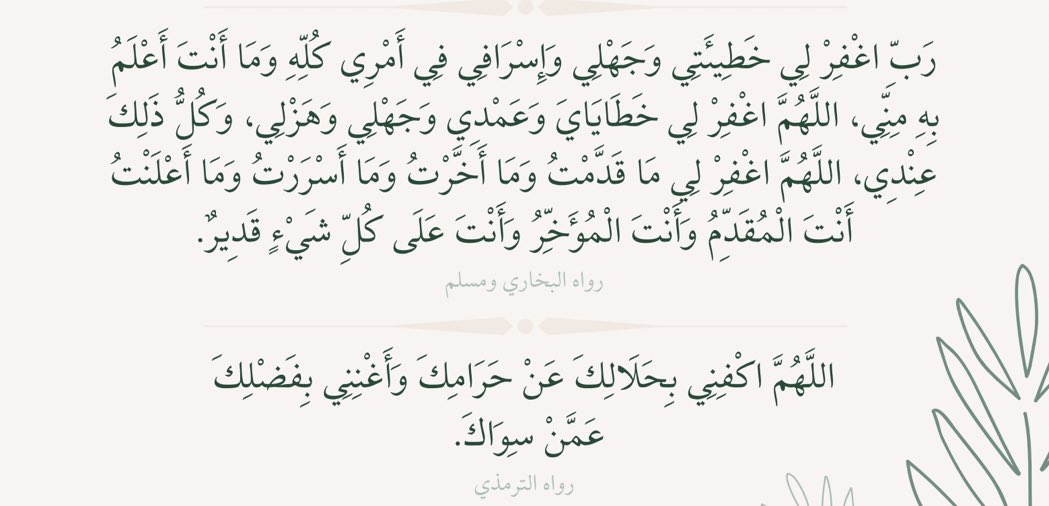 رَبِّ اغْفِرْ لِي خَطِيئَتِي وَجَهْلِي وَإِسْرَافِي فِي أَمْرِي كُلِّهِ وَمَا أَنْتَ أَعْلَمُ
بِهِ مِنِّي، اللَّهُمَّ اغْفِرْ لِي خَطَايَايَ وَعَمْدِي وَجَهْلِي وَهَزْلِي، وَكُلُّ ذَلِكَ
عِنْدِي، اللَّهُمَّ اغْفِرْ لِي مَا قَدَّمْتُ وَمَا أَخَّرْتُ وَمَا أَسْرَرْتُ وَمَا أَعْلَنْتُ
أَنْتَ الْمُقَدِّمُ وَأَنْتَ الْمُؤَخِّرُ وَأَنْتَ عَلَى كُلِّ شَيْءٍ قَدِيرٌ.
رواه البخاري ومسلم
اللَّهُمَّ اكْفِنِي بِحَلَالِكَ عَنْ حَرَامِكَ وَأَغْنِنِي بِفَضْلِكَ
عَمَّنْ سِوَاكَ.
رواه الترمذي